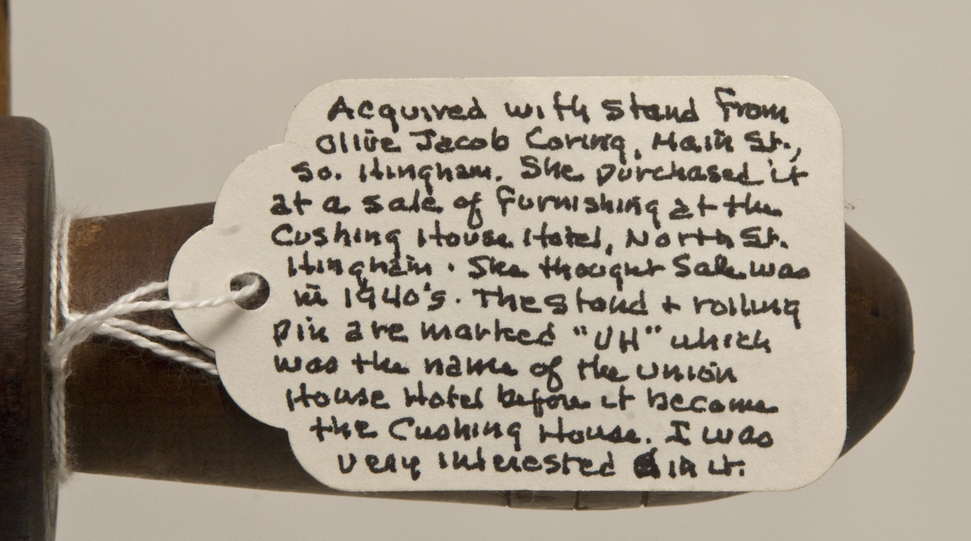 Acquired with stand from
Olive Jacob Coring, Main St.,
So. Hingham. She purchased it
at a sale of furnishing at the
Cushing House Hotel, North St.
Hingham. She thought Sale was
in 1940's. The stand + rolling
pin are marked "UH" which
was the name of the Union
House Hotel before it became
the Cushing House. I was
very interested in it.